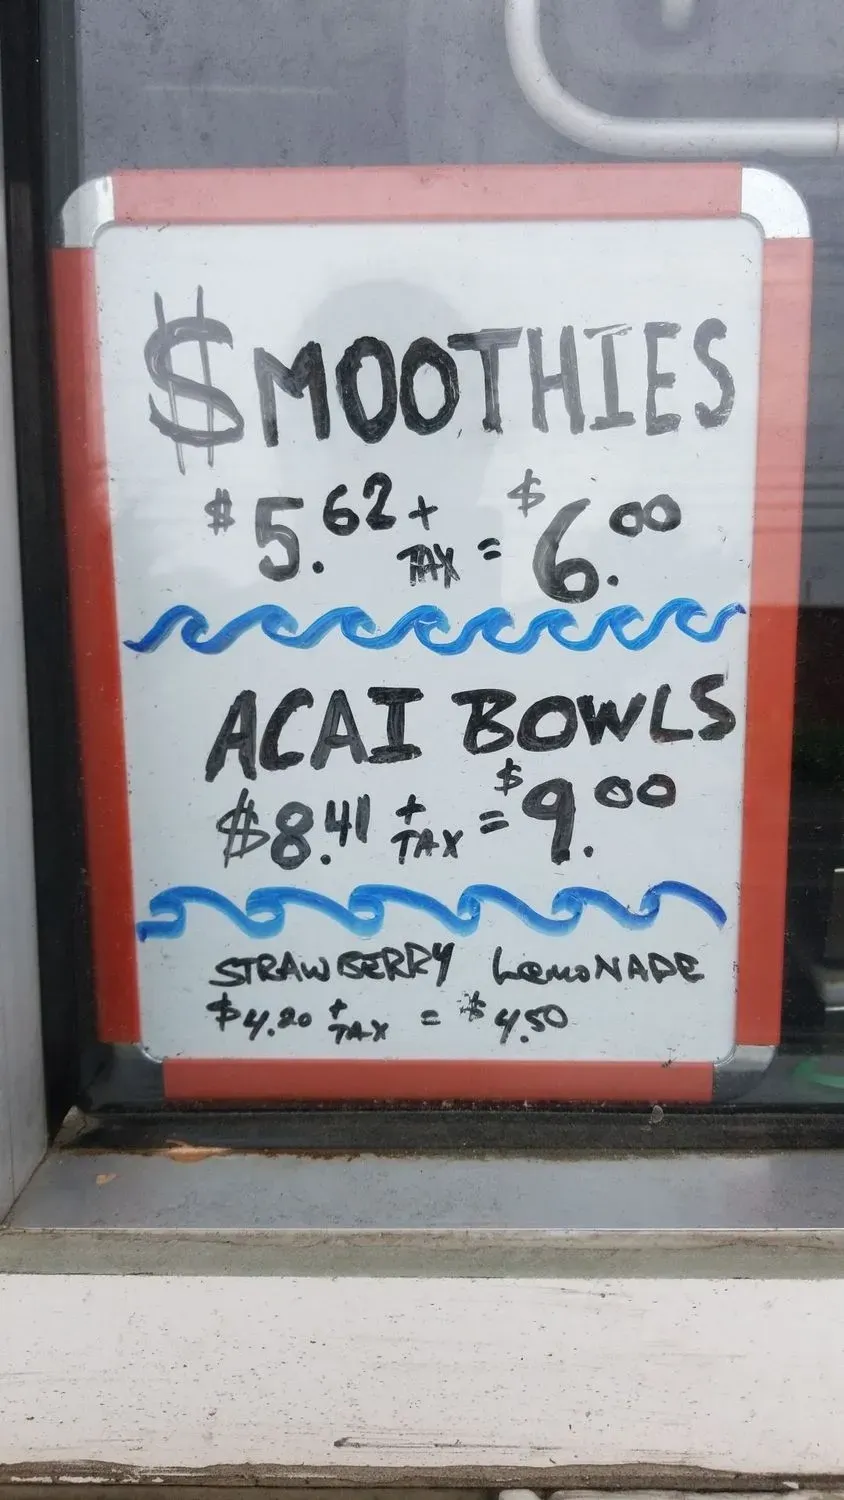 $MOOTHIES
$5.62 + TAX = $6.00
ACAI BOWLS
$8.41 + TAX = $9.00
STRAWBERRY LemoNADE
$4.20 + TAX = $4.50